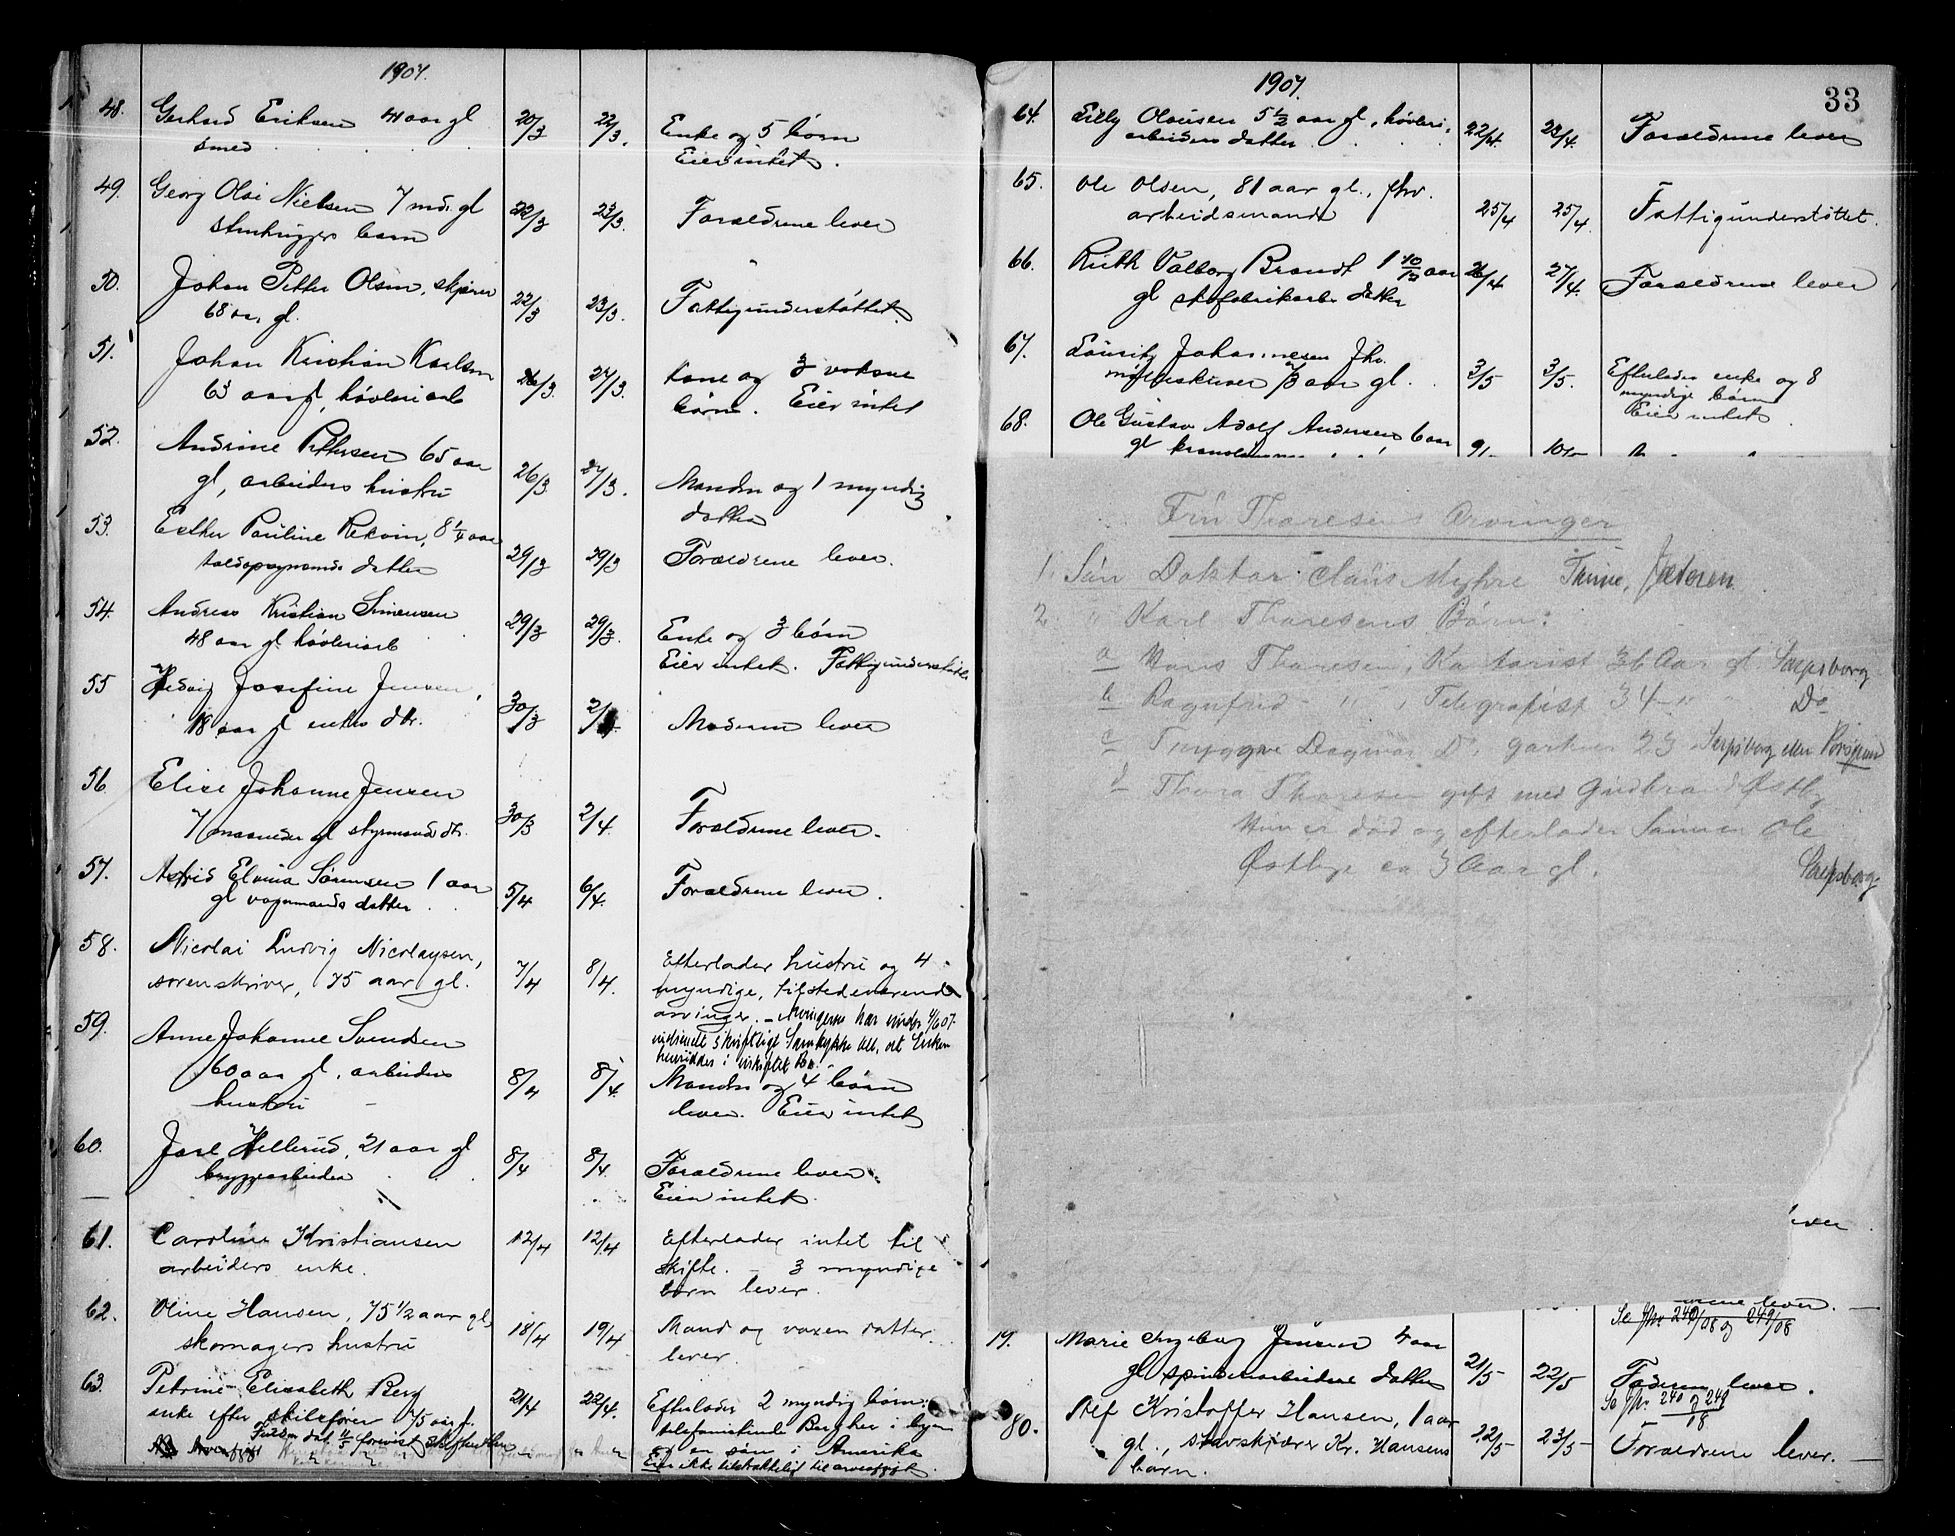 1907.
48. Gerhard Eriksen 41 aar gl
smed
20/3 22/3.
Enke og 5 børn
Eier intet.
49. Georg Olai Nielsen 7 mdr. gl
stenhuggers barn
22/3 23/3.
Forældrene lever
50. Johan Petter Olsen, skjærer
68 aar gl.
22/3 23/3.
Fattigunderstøttet
51. Johan Kristian Karlsen
63 aar gl, høvleriarb
26/3. 27/3.
Kone og 3 voksne
børn. Eier intet
52. Andrine Pettersen 65 aar
gl, arbeiders hustru
26/3 27/3.
Manden og 1 myndig
datter
53. Esther Pauline 8 1/4 aar
datter
29/3 29/3
Forældrene lever.
54. Andreas Kristian Simensen
48 aar gl høvleriarb
29/3 29/3.
Enke og 3 børn
Eier intet. Fattigunderstøttet
55 Hedvig Josefine Jensen,
18 aar gl enkes dtr.
30/3
Moderen lever
56. Elise Johanne Jensen
7 maaneder gl styrmands dtr.
30/3 2/4.
Forældrene lever.
57. Astrid Elvina Sørensen 1 aar
gl vognmands datter
5/4 6/4.
Forældrene lever
58. Nicolai Ludvig Nicolaysen,
sorenskriver, 75 aar gl.
7/4 8/4.
Efterlader hustru og 4
myndige, tilstedeværende
arvinger. - Arvingerne har under 4/6 07.
skriftligt Samtykke til, at Enken
hensidder i uskiftet Bo.
59. Anne Johanne Svendsen
60 aar gl, arbeiders
hustru
8/4 8/4.
Manden og 4 børn
lever. Eier intet
60. Jarl Hellerud, 21 aar gl
bryggearbeider
8/4 8/4.
Forældrene lever.
Eier intet.
61. Caroline Kristiansen
arbeiders enke.
12/4 12/4
Efterlader intet til
skifte. - 3 myndige
børn lever.
62. Oline Hansen, 75 1/2 aar gl,
skomagers hustru
18/4 19/4
Mand og voxen datter
lever.
63. Petrine Elisabeth Berg
enke efter skibsfører 75 aar gl.
21/4 22/4.
Efterlader 2 myndig børn.
Berg her i byen
og en søn i Amerika
Eier ikke tilstrækkelig til arveafgift
1907.
33
64. Lilly Olausen 5 1/2 aar gl, høvleri
arbeiders datter
22/4. 23/4.
Forældrene lever
65. Ole Olsen, 81 aar gl., fhv.
arbeidsmand
25/4 25/4.
Fattigunderstøttet.
66. Ruth Valborg Brandt 1 10/12 aar
gl skofabrikarb. datter
26/4 27/4.
Forældrene lever
67. Lauritz Johannesen fhv.
aar gl.
3/5 3/5.
Efterlader enke og 8
myndige børn
Eier intet
68. Ole Gustav Adolf Andersen 6 aar
gl
Fru Thoresens Arvinger
1. Søn Doktor Claus Myhre Thime, Jæderen
2. " Karl Thoresens Børn:
a Hans Thoresen, Kontorist 36 Aar gl. Sarpsborg
b Ragnfrid " , Telegrafist 34 " Do
c Tryggve Dagmar D. gartner 23 Sarpsborg eller Porsgrund
d Thora Thoresen gift med Gudbrand Østby
Hun er død og efterlader Sønnen Ole
Østbye ca 3 Aar gl. Sarpsborg
lever
lever.
Se jnr 240/08 og 249/08
79. Marie Ingeborg Jensen 4 aar
gl spinderiarbeiders datter
21/5 22/5
Faderen lever.
Se jnr. 240 og 249
08
80. Alef Kristoffer Hansen, 1 aar
gl., stavskjærer Kr. Hansens
barn.
22/5 23/5
Forældrene lever.